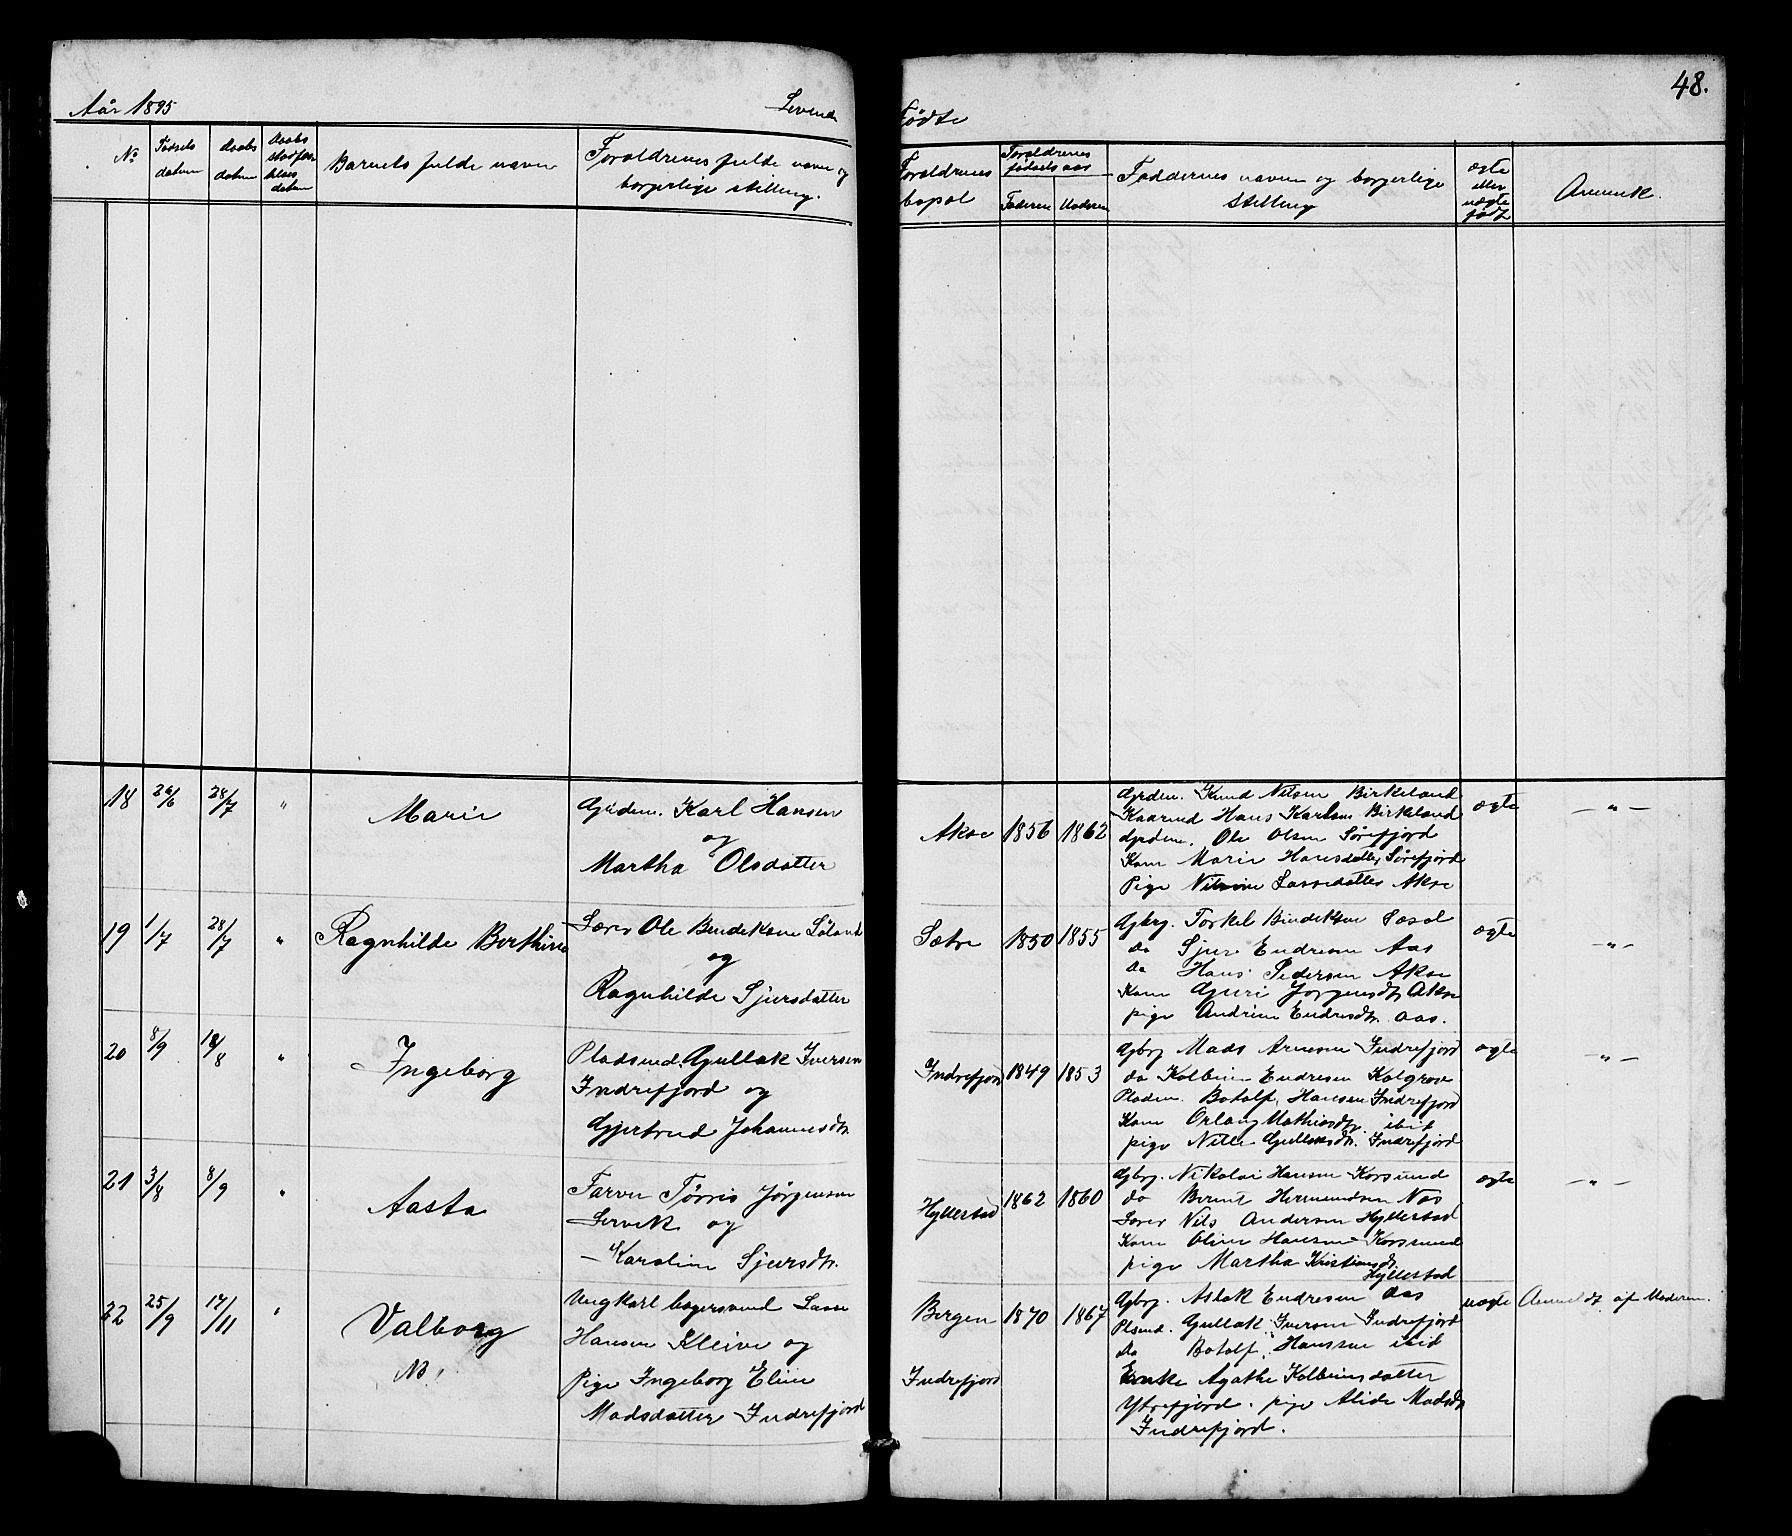 Aår 1895
Levende
Fødte
48.
No
Fødsels datum
Daabs datum
Daabs datum
Barnets fulde navn
Forældrenes fulde navn og borgerlige stilling.
Forældrenes bopæl
Forældrenes fødselsaar
Faderens
Moderens
Faddernes navne og borgerlige stilling
ægte eller uægte født
Anmerk.
18 26/6 28/7 " Marie
Gjrdm. Karl Hansen
og
Martha Olsdatter
Akse 1856 1862
Gjrdm. Knud Nilsen Birkeland
Hans Karlsen Birkeland
Gjrdm. Ole Olsen Sørefjord
Kone Marie Hansdatter Sørefjord
Pige Nilsine Lassedatter Akse
ægte
— " —
19 1/7 28/7 " Ragnhilde Berthine
Lærer Ole Bendiksen Søland
og
Ragnhilde Sjursdatter
Sætre 1850 1855
Gbrg. Torkel Bendiksen
do Sjur Endresen Aas
do Hans Pedersen Akse
Kone Guri Jørgensdtr. Akse
pige Andrine Endresdtr. Aas.
ægte
— " —
20 8/9 18/8 " Ingeborg
Pladsmd. Gullak Iversen
Indrefjord og
Gjertrud Johannesdtr.
Indrefjord 1849 1853
Gbrg Mads Arnesen Indrefjord
do Kolbein Endresen Kolgrov
Pladsm. Botolf Hansen Indrefjord
Kone Mathiasdtr. ibid
pige Nille Gullaksdtr. Indrefjord
ægte
— " —
21 3/8 8/9 " Aasta
Farver Tørris Jørgensen
Lervik og
Karoline Sjursdtr.
Hyllestad 1862 1860
Gbrg. Nikolai Hansen Korssund
do Bernt Hermundsen Næs
Lærer Nils Andersen Hyllestad
Kone Oline Hansen Korssund
pige Martha Kristiansdtr.
Hyllestad
ægte
— " —
22 25/9 17/11 " Valborg
NB!
Ungkarl bagersvend Lasse
Hansen Kleive og
Pige Ingeborg Eline
Madsdatter Indrefjord
Bergen 1870 1867
Indrefjord
Gbrg. Aslak Endresen Aas
Plsmd. Gullak Iversen Indrefjord
do Botolf Hanssen ibid
Enke Agathe Kolbeinsdatter
Ytrefjord. pige Alide Madsdtr
Indrefjord.
uægte
Anmeldt af Moderen.